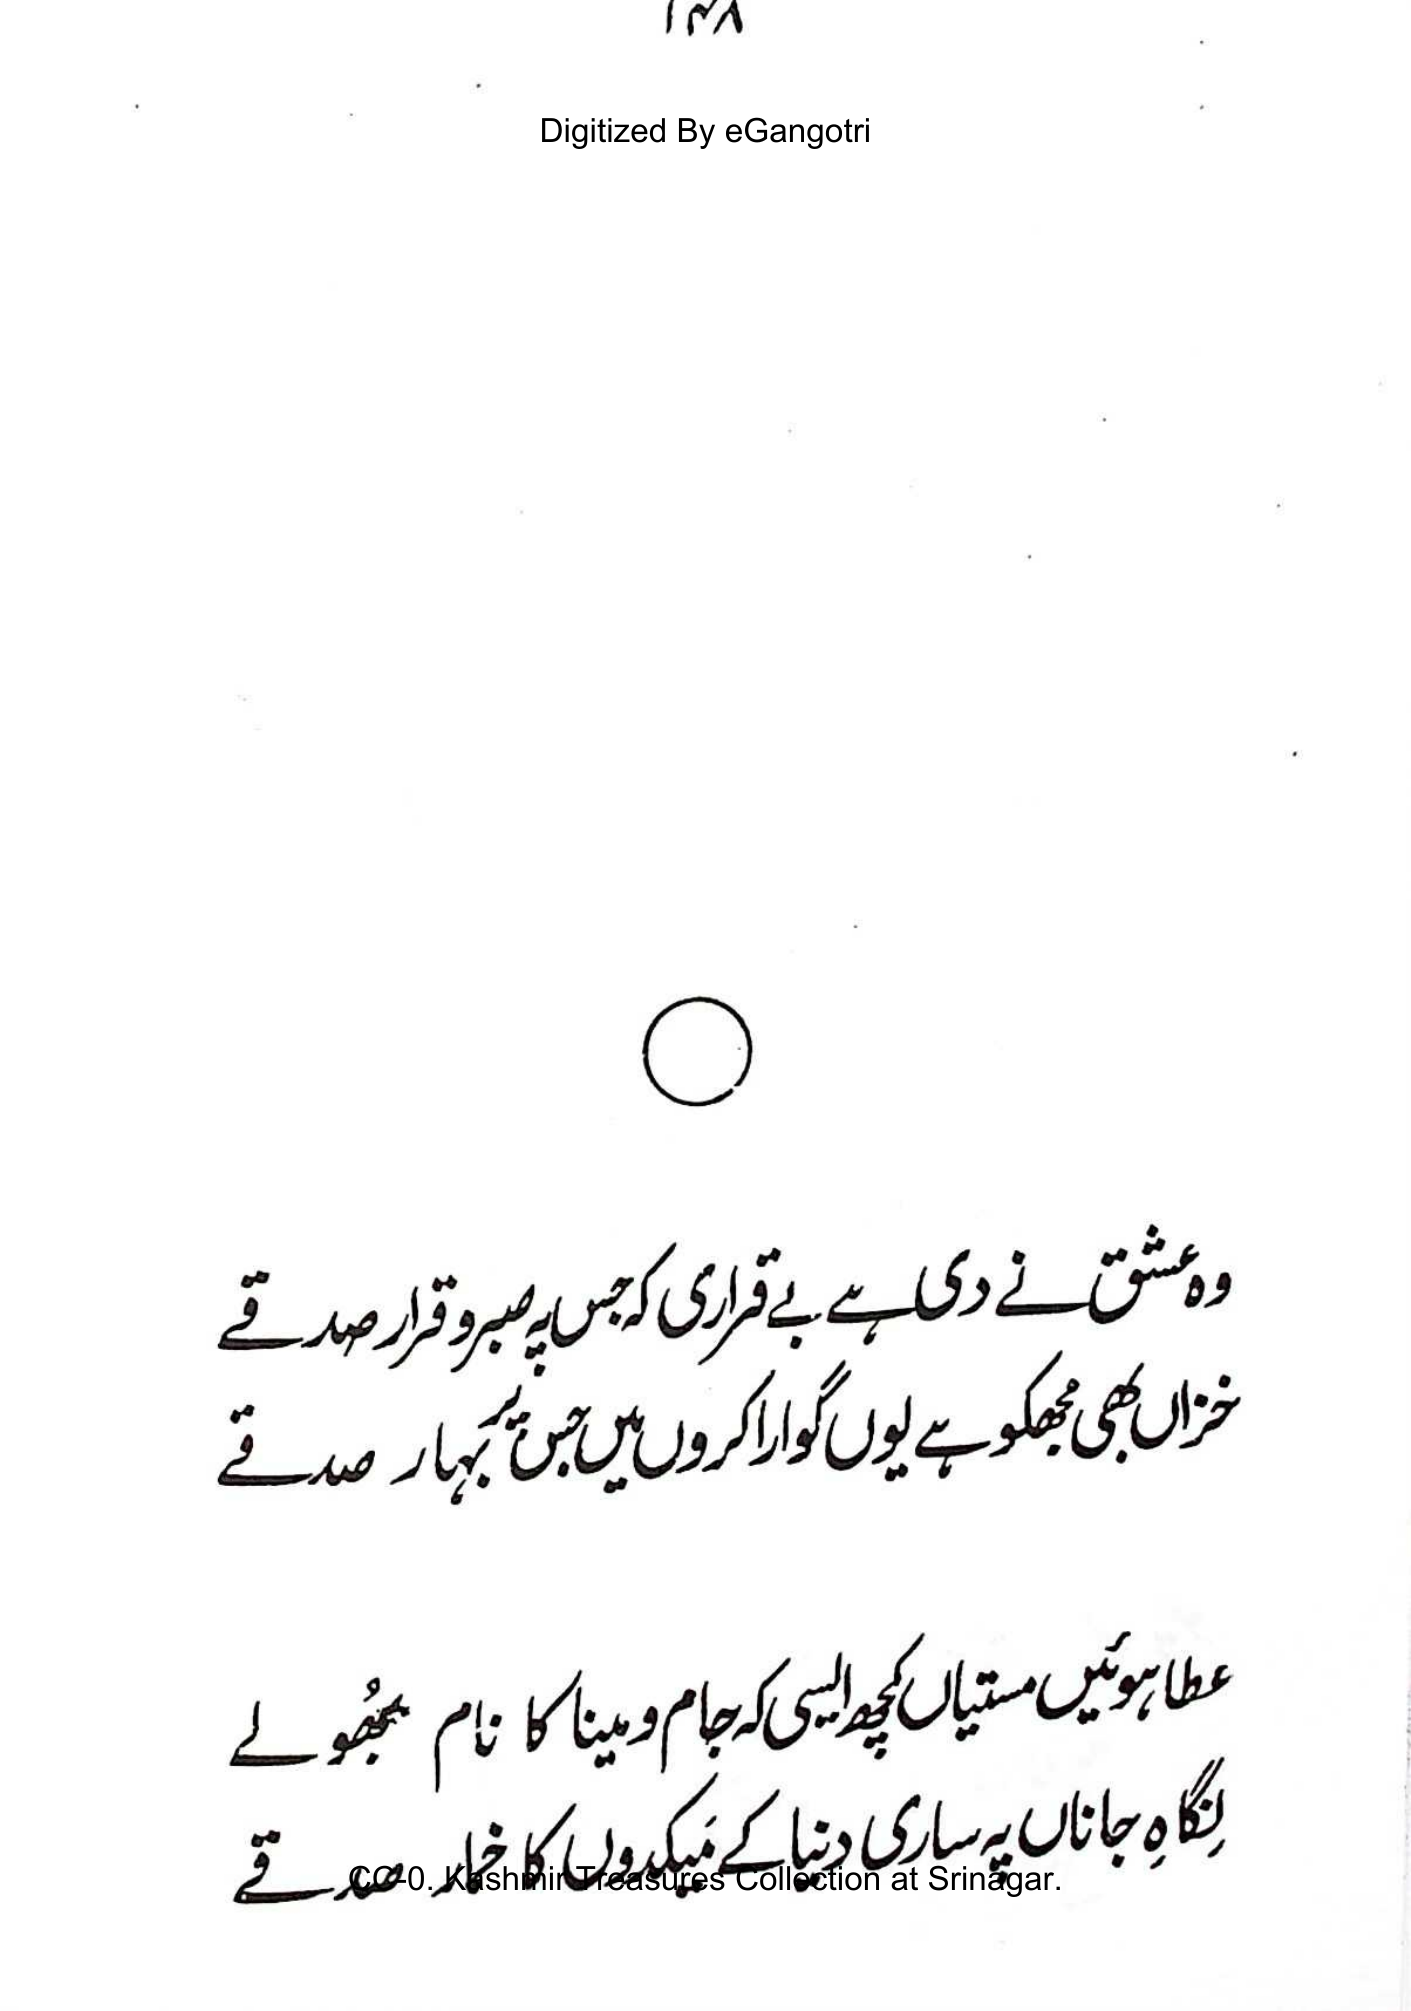 ۱۴۸
Digitized By eGangotri
وہ عشق نے دی ہے بے قراری کہ جس پہ صبر و قرار صدقے
خزاں بھی مجھکو ہے یوں گوارا کروں میں جس پر بہار صدقے
عطا ہوئیں مستیاں کچھ ایسی کہ جام و مینا کا نام بھُولے
نِگاہِ جاناں پہ ساری دنیا کے مَیکدوں کا خمار صدقے
CC-0. Kashmir Treasures Collection at Srinagar.